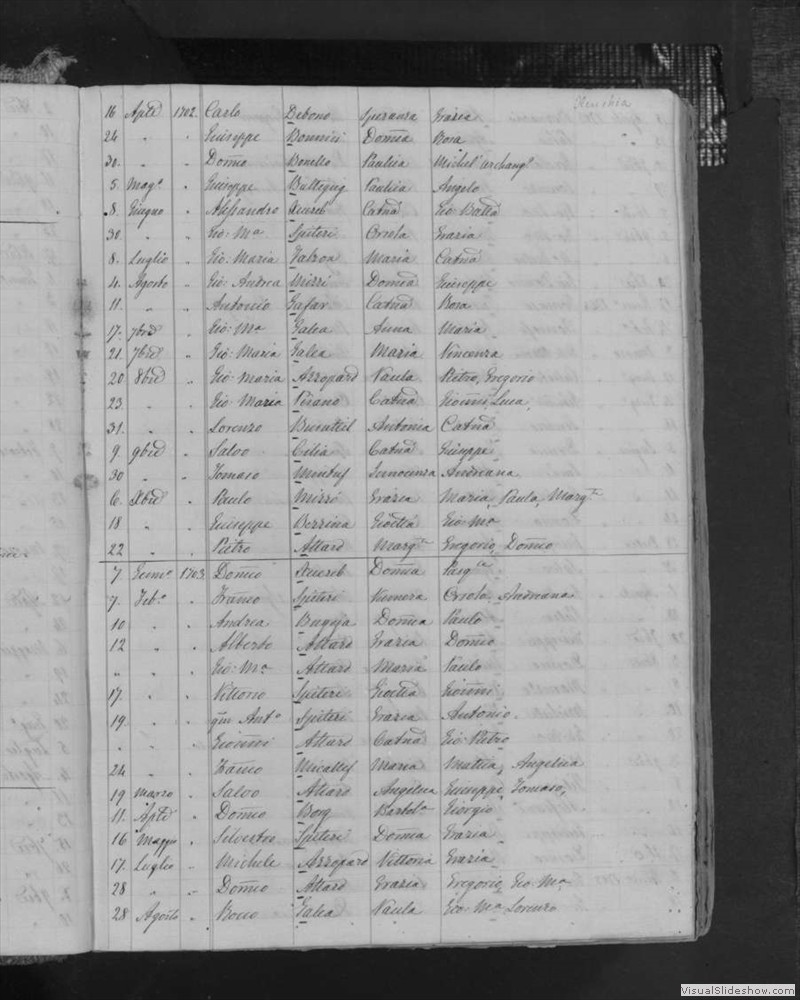 16 Aple 1702 Carlo Debono Speranza Grazia
24 " " Giuseppe Bonnici Domca Rosa
30. " " Domco Bonello Paulica Michel'Archango
5. Maggo " Giuseppe Buttigieg Paulica Angelo
8. Giugno " Alessandro Xuereb Catna Gio: Batta
30. " " Gio: Ma Spiteri Orsola Grazia
8. Luglio " Gio: Maria Falzon Maria Catna
4. Agosto " Gio: Andrea Mizzi Domca Giuseppe
11. " " Antonio Gafar Catna Rosa
17. 7bre " Gio: Ma Galea Anna Maria
21. 7bre " Gio: Maria Galea Maria Vincenza
20 8bre " Gio: Maria Azzopard Paula Pietro, Gregorio
23. " " Gio: Maria Catna Gionni, Luca,
31. " " Lorenzo Antonia Catna
9. 9bre " Salvo Cilia Catna Giuseppe
30 " " Tomaso Innocenza Andreana
6. Xbre " Paulo Mizzi Grazia Maria, Paula, Margta
18 " " Giuseppe Gio: Ma
22 " " Pietro Attard Margta Gregorio, Domco
7. Genno 1703 Domco Xuereb Domca
7. Febo " Franco Spiteri Orsola, Andreana
10 " " Andrea Bugeja Domca Paulo
12 " " Alberto Attard Grazia Domco
" " " Gio: Ma Attard Maria Paulo
17. " " Vittorio Spiteri Gionni
19. " " qm Anto Spiteri Grazia Antonio.
" " " Gionni Attard Catna Gio: Pietro
24 " " Franco Micallef Maria Angelica
19 marzo " Salvo Attard Angelica Giuseppe, Tomaso,
11. Aple " Domco Borg Bartola Giorgio
16 Maggo " Silvestro Spiteri Domca Grazia
17. Luglio " Michele Azzopard Vittoria Grazia
28 " " Domco Attard Grazia Gregorio, Gio: Ma
28 Agosto " Rocco Galea Paula Gio: Ma Lorenzo
VisualSlideshow.com